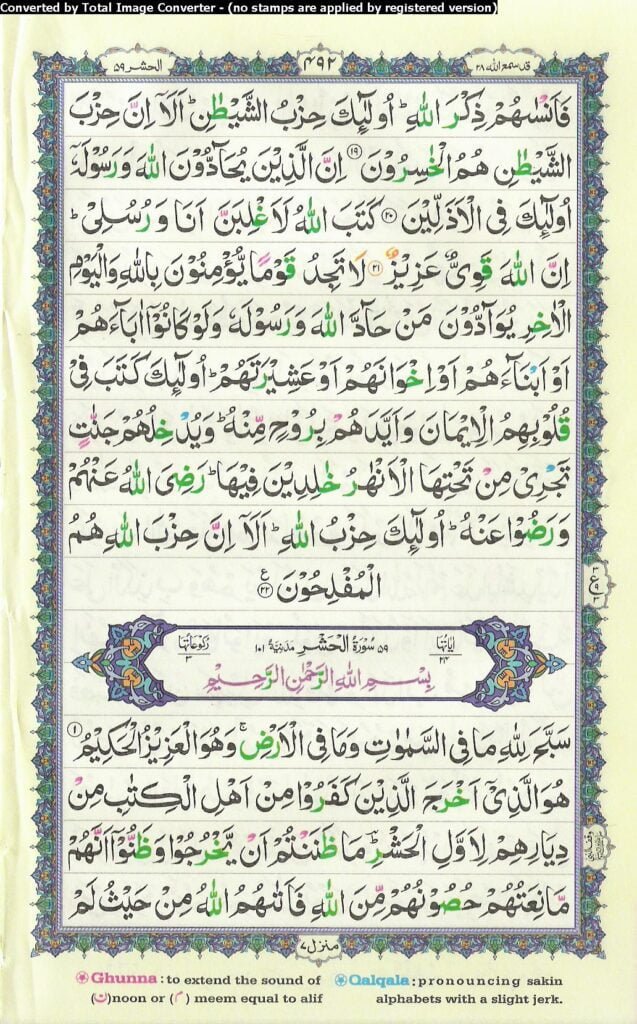 Converted by Total Image Converter - (no stamps are applied by registered version)
قد سمع الله ٢٨
۴۹۲
الحشر ۵۹
فَاَنْسٰىهُمْ ذِكْرَ اللّٰهِ ؕ اُولٰٓئِكَ حِزْبُ الشَّيْطٰنِ ؕ اَلَاۤ اِنَّ حِزْبَ
الشَّيْطٰنِ هُمُ الْخٰسِرُوْنَ ۱۹ اِنَّ الَّذِيْنَ يُحَآدُّوْنَ اللّٰهَ وَرَسُوْلَهٗۤ
اُولٰٓئِكَ فِى الْاَذَلِّيْنَ ۲۰ كَتَبَ اللّٰهُ لَاَغْلِبَنَّ اَنَا وَرُسُلِىْ ؕ
اِنَّ اللّٰهَ قَوِىٌّ عَزِيْزٌ ۲۱ لَا تَجِدُ قَوْمًا يُّؤْمِنُوْنَ بِاللّٰهِ وَالْيَوْمِ
الْاٰخِرِ يُوَآدُّوْنَ مَنْ حَآدَّ اللّٰهَ وَرَسُوْلَهٗ وَلَوْ كَانُوْۤا اٰبَآءَهُمْ
اَوْ اَبْنَآءَهُمْ اَوْ اِخْوَانَهُمْ اَوْ عَشِيْرَتَهُمْ ؕ اُولٰٓئِكَ كَتَبَ فِىْ
قُلُوْبِهِمُ الْاِيْمَانَ وَاَيَّدَهُمْ بِرُوْحٍ مِّنْهُ ؕ وَيُدْخِلُهُمْ جَنّٰتٍ
تَجْرِىْ مِنْ تَحْتِهَا الْاَنْهٰرُ خٰلِدِيْنَ فِيْهَا ؕ رَضِىَ اللّٰهُ عَنْهُمْ
وَرَضُوْا عَنْهُ ؕ اُولٰٓئِكَ حِزْبُ اللّٰهِ ؕ اَلَاۤ اِنَّ حِزْبَ اللّٰهِ هُمُ
الْمُفْلِحُوْنَ ۲۲ ع
اٰيَاتُهَا ۲۴ ۵۹ سُوْرَةُ الْحَشْرِ مَدَنِيَّةٌ ۱۰۱ رُكُوْعَاتُهَا ۳
بِسْمِ اللّٰهِ الرَّحْمٰنِ الرَّحِيْمِ
سَبَّحَ لِلّٰهِ مَا فِى السَّمٰوٰتِ وَمَا فِى الْاَرْضِ ۚ وَهُوَ الْعَزِيْزُ الْحَكِيْمُ ۱
هُوَ الَّذِىْۤ اَخْرَجَ الَّذِيْنَ كَفَرُوْا مِنْ اَهْلِ الْكِتٰبِ مِنْ
دِيَارِهِمْ لِاَوَّلِ الْحَشْرِ ؕ مَا ظَنَنْتُمْ اَنْ يَّخْرُجُوْا وَظَنُّوْۤا اَنَّهُمْ
مَّانِعَتُهُمْ حُصُوْنُهُمْ مِّنَ اللّٰهِ فَاَتٰىهُمُ اللّٰهُ مِنْ حَيْثُ لَمْ
منزل ۷
Ghunna : to extend the sound of
(ن) noon or (م) meem equal to alif
Qalqala : pronouncing sakin
alphabets with a slight jerk.